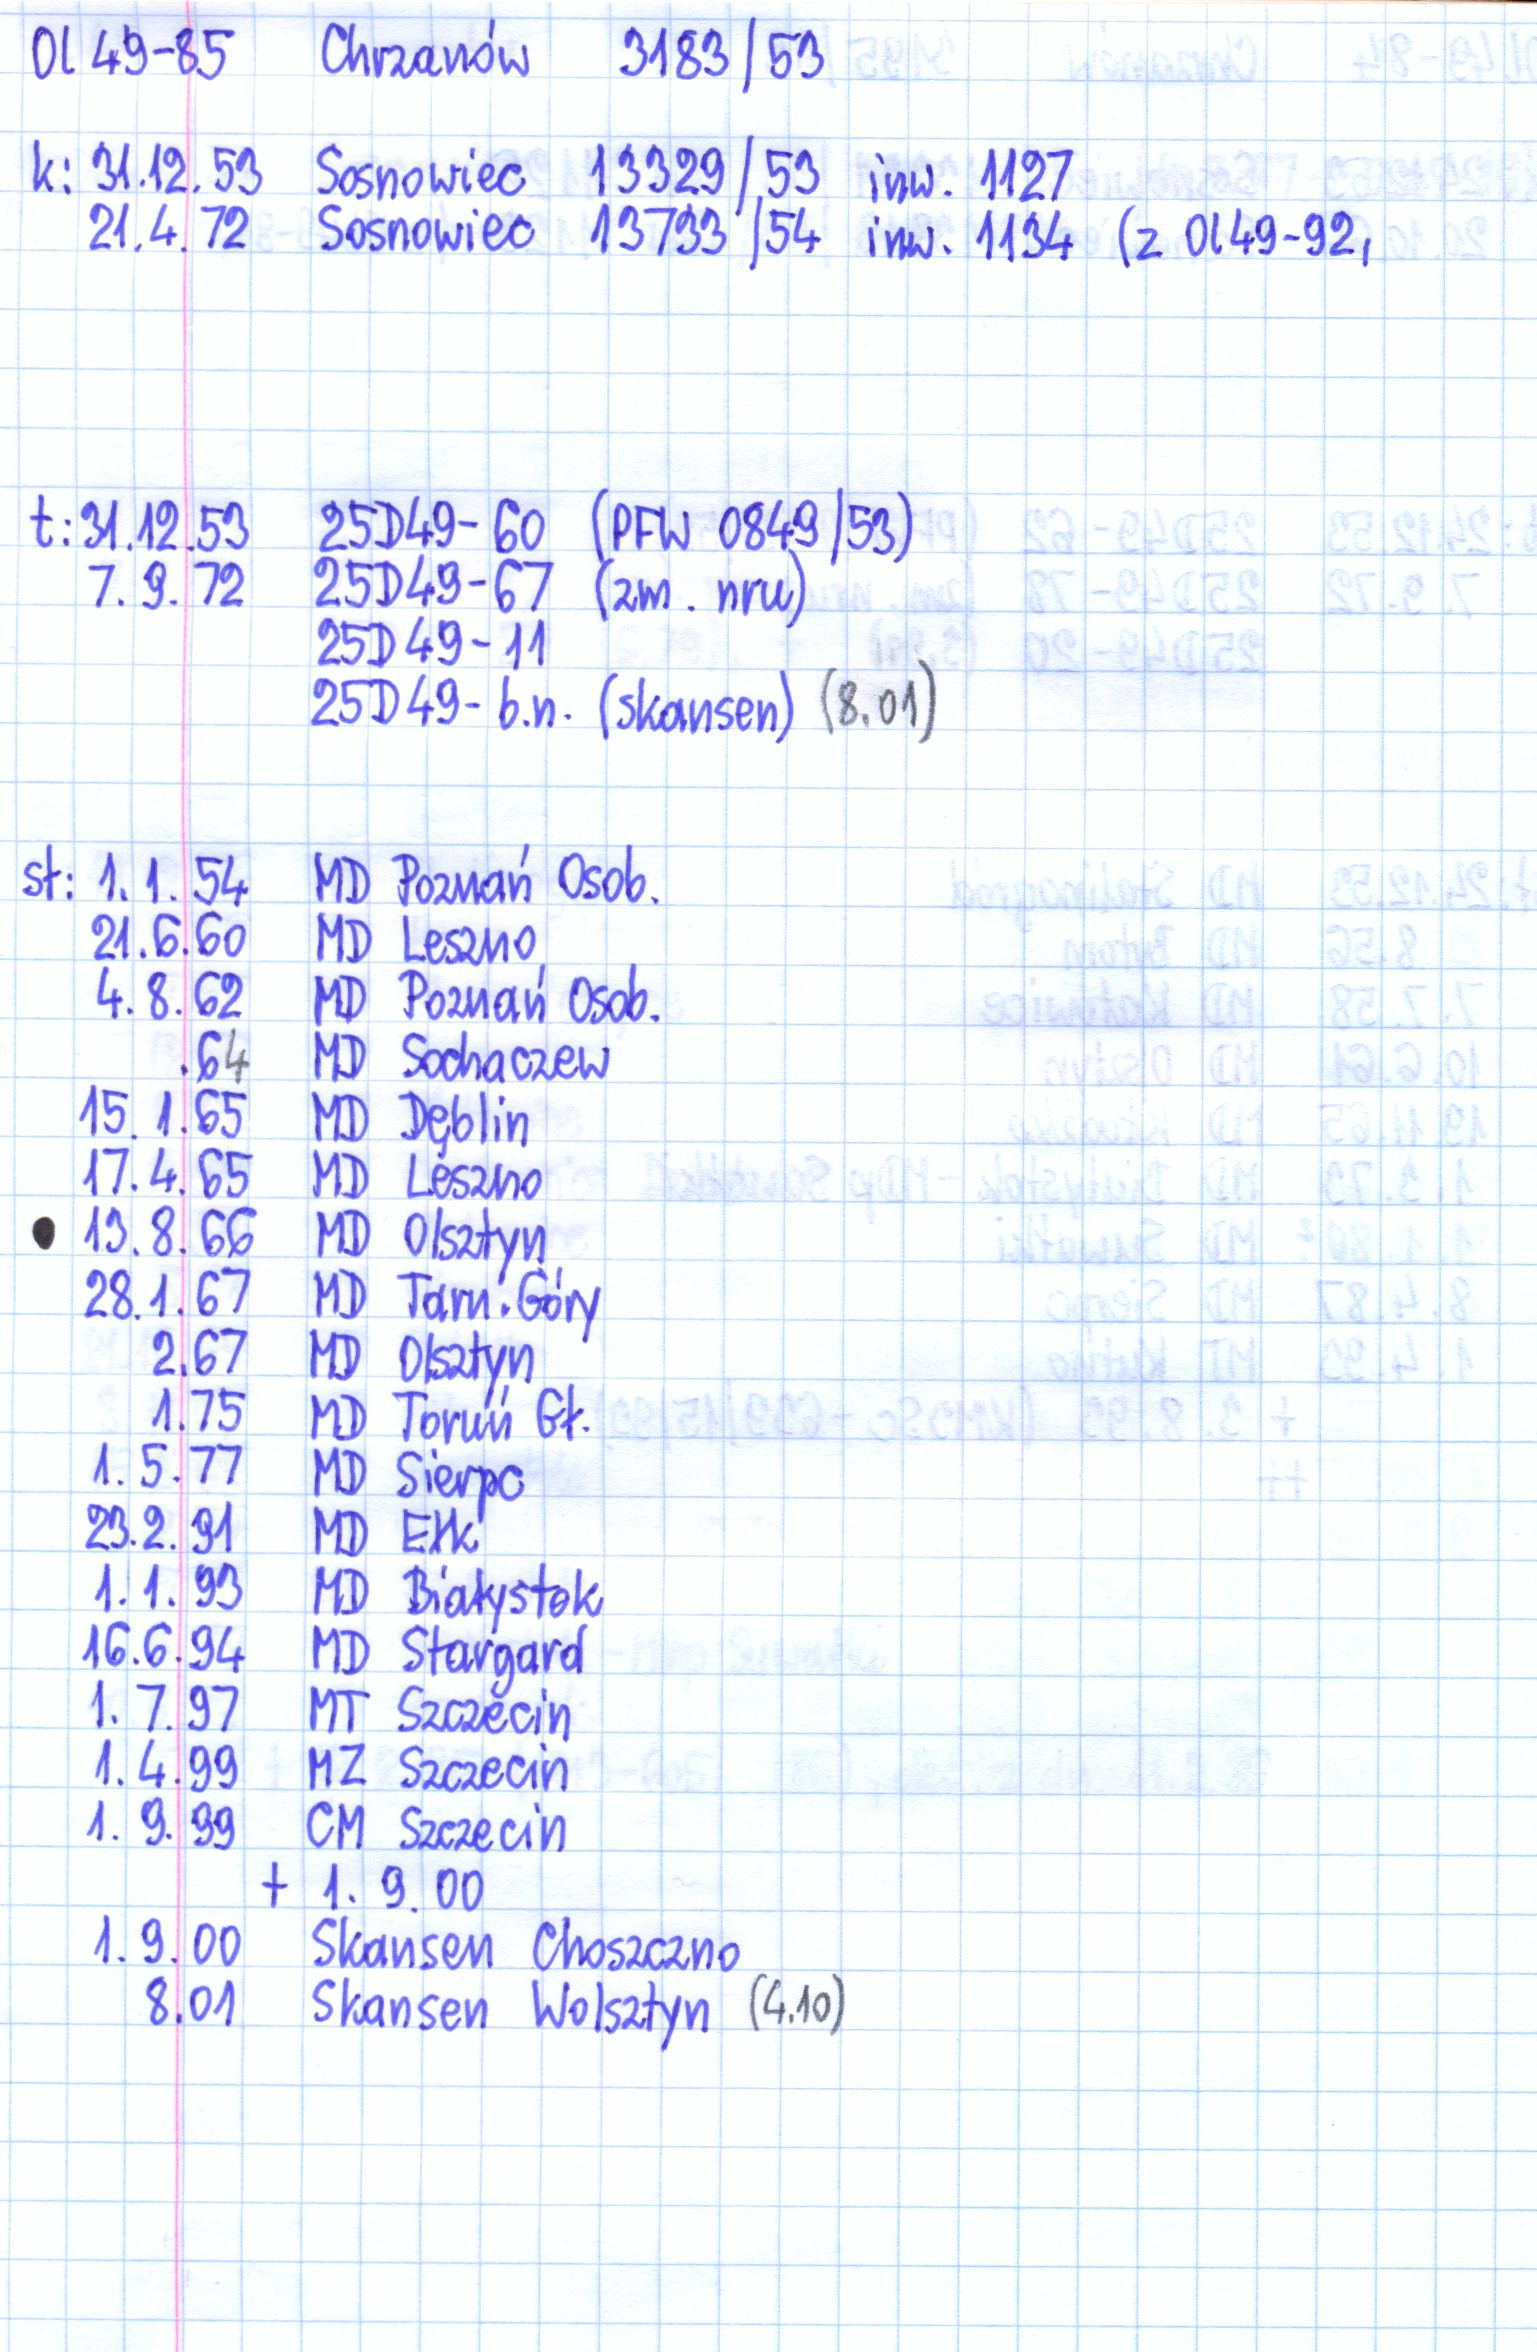 Ol 49-85 Chrzanów 3183/53
k: 31.12.53 Sosnowiec 13329/53 inw. 1127
21.4.72 Sosnowiec 13733/54 inw. 1134 (z Ol49-92,
t: 31.12.53 25D49-60 (PFW 0849/53)
7.9.72 25D49-67 (zm. nru)
25D49-11
25D49-b.n. (skansen) (8.01)
st: 1.1.54 MD Poznań Osob.
21.6.60 MD Leszno
4.8.62 MD Poznań Osob.
.64 MD Sochaczew
15.1.65 MD Dęblin
17.4.65 MD Leszno
● 13.8.66 MD Olsztyn
28.1.67 MD Tarn. Góry
2.67 MD Olsztyn
1.75 MD Toruń Gł.
1.5.77 MD Sierpc
23.2.91 MD Ełk
1.1.93 MD Białystok
16.6.94 MD Stargard
1.7.97 MT Szczecin
1.4.99 MZ Szczecin
1.9.99 CM Szczecin
+ 1.9.00
1.9.00 Skansen Choszczno
8.01 Skansen Wolsztyn (4.10)